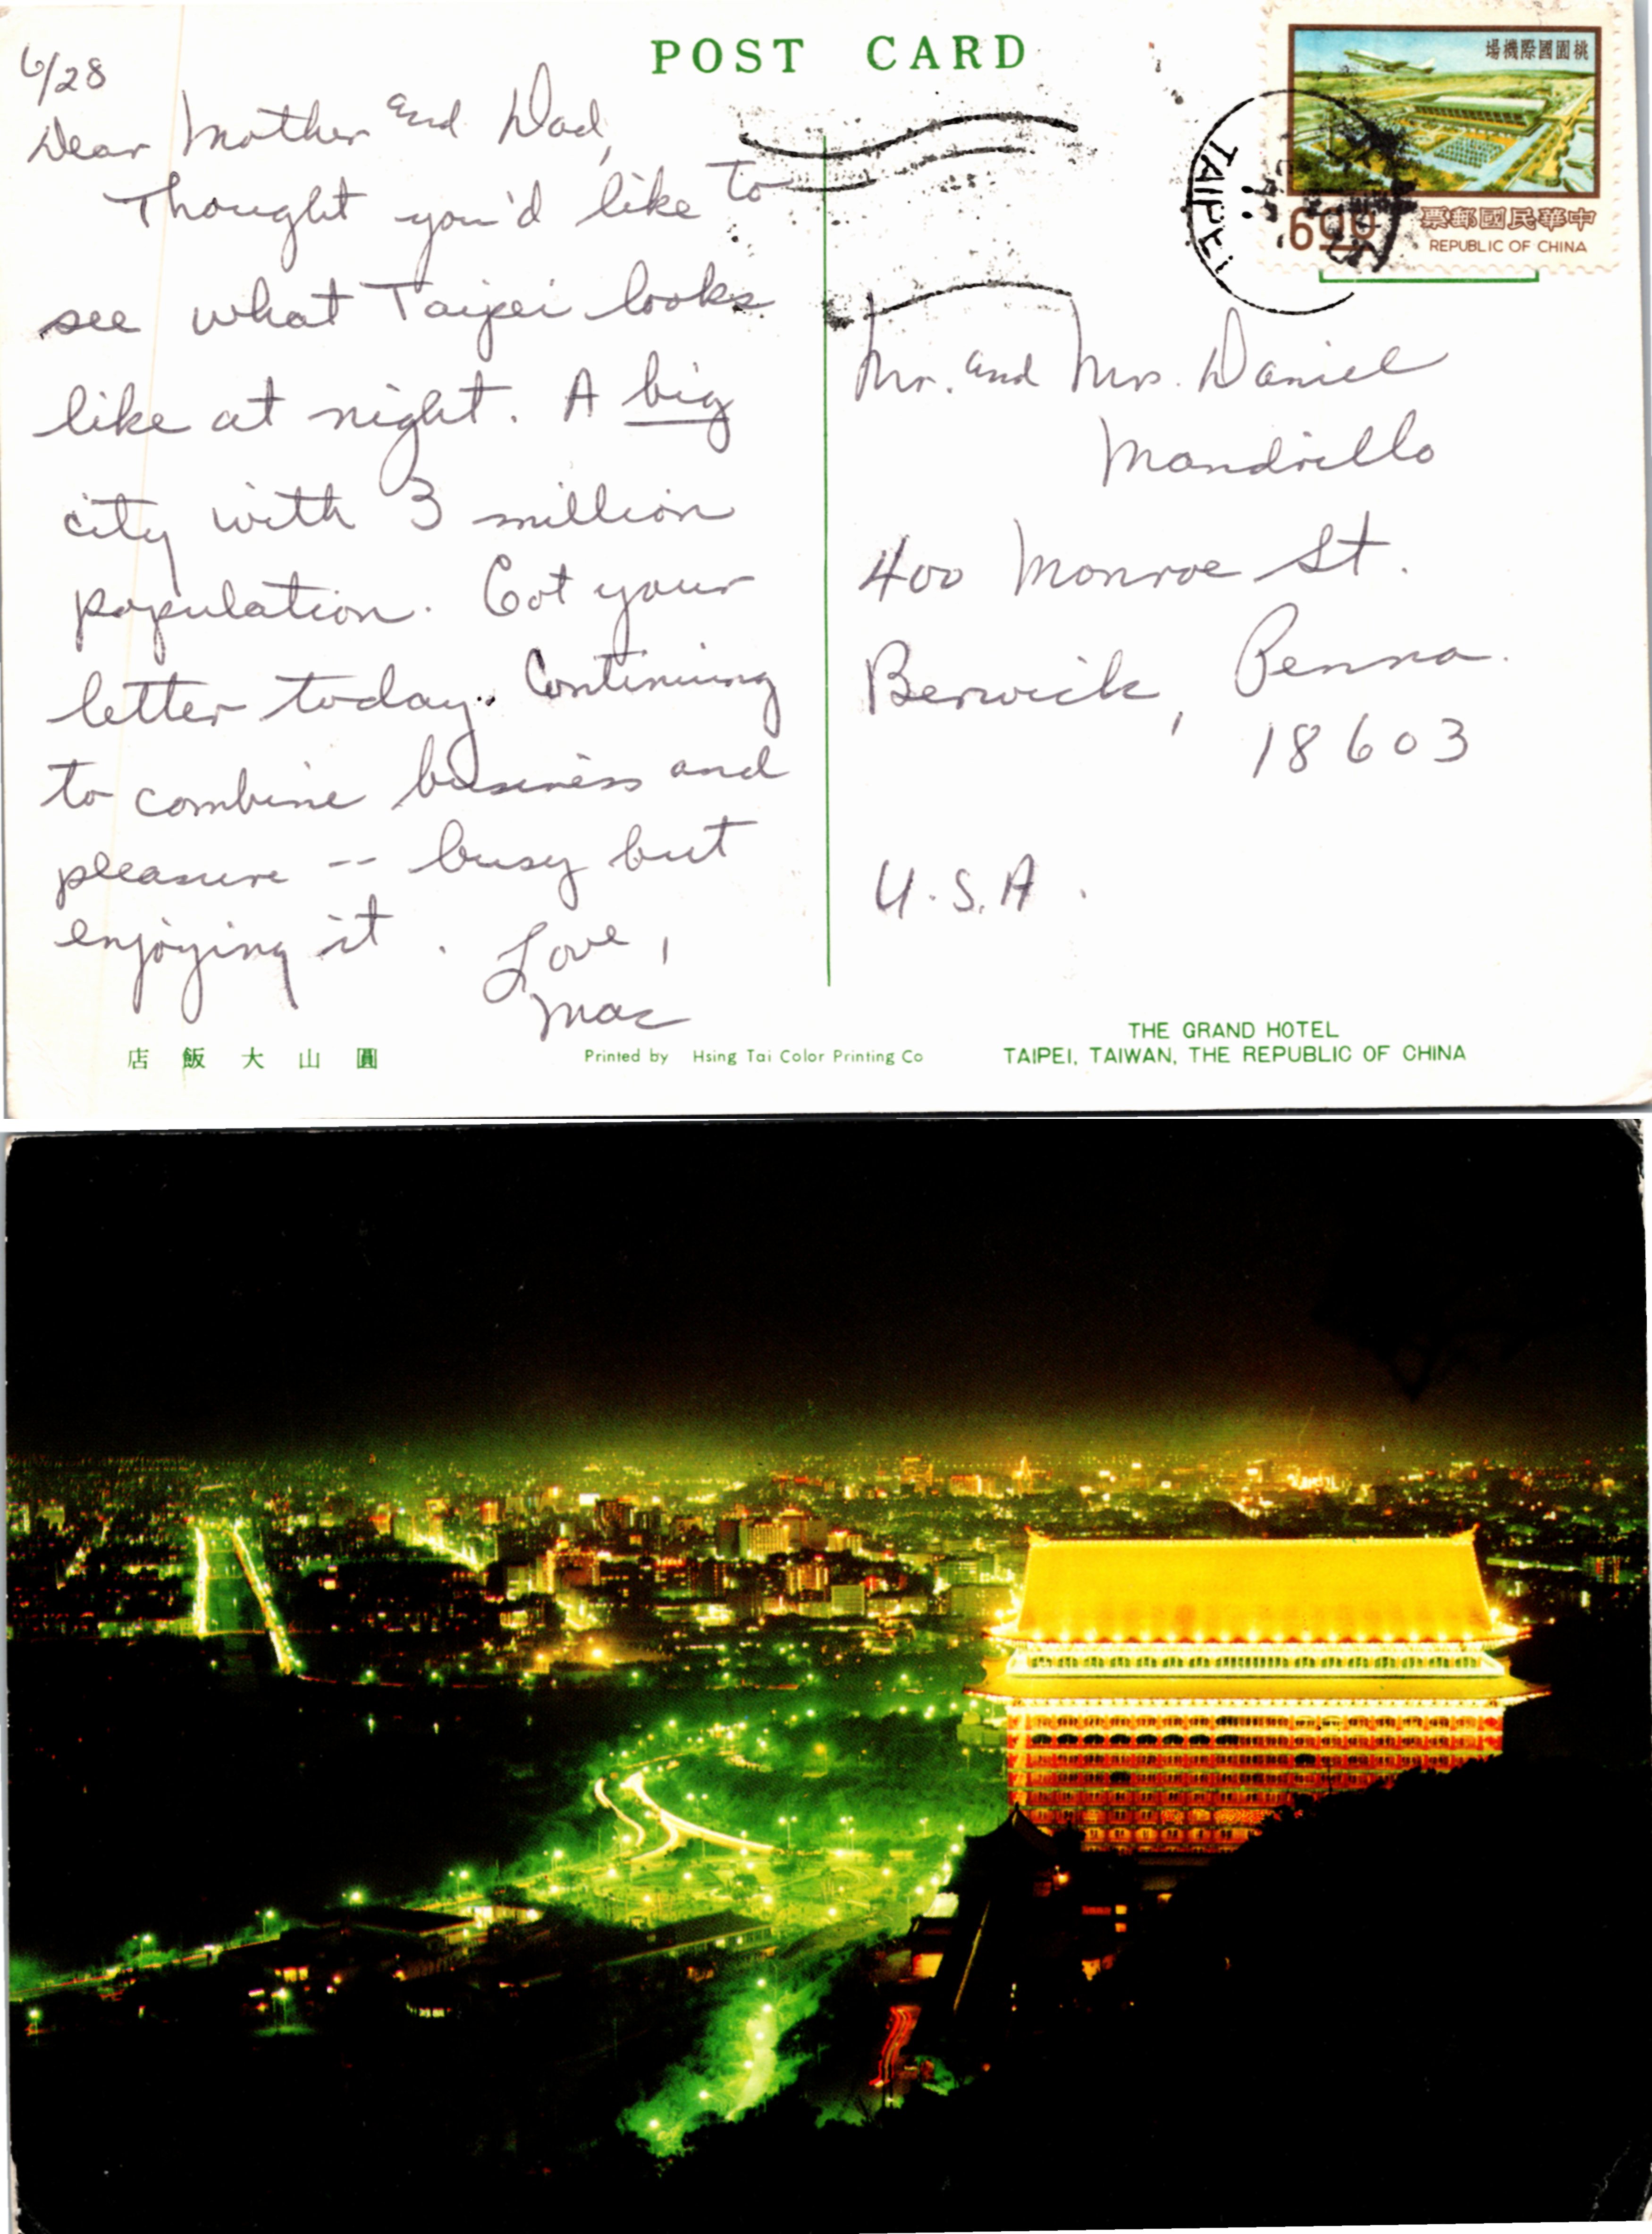 POST CARD
6/28
Dear Mother and Dad,
Thought you'd like to
see what Taipei looks
like at night. A big
city with 3 million
population. Got your
letter today. Continuing
to combine business and
pleasure -- busy but
enjoying it. Love,
Mac
場機際國園桃
TAIPEI
600
票郵國民華中
REPUBLIC OF CHINA
Mr. and Mrs. Daniel
Mandrillo
400 Monroe St.
Berwick, Penna.
18603
U.S.A.
店飯大山圓
Printed by Hsing Tai Color Printing Co
THE GRAND HOTEL
TAIPEI, TAIWAN, THE REPUBLIC OF CHINA